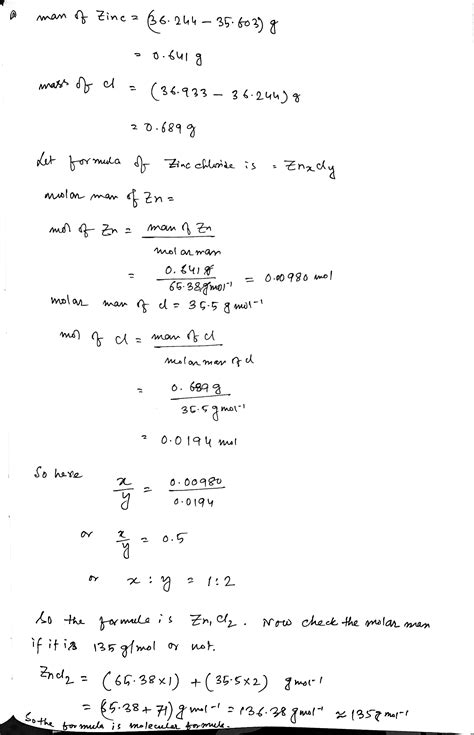 mass of Zinc = (36.244 - 35.603) g
= 0.641 g
mass of cl = (36.933 - 36.244) g
= 0.689 g
Let formula of Zinc chloride is = Znxcly
molar mass of Zn =
mol of Zn = mass of Zn
molar mass
= 0.641 g
65.38 gmol-1 = 0.00980 mol
molar mass of cl = 35.5 g mol-1
mol of cl = mass of cl
molar mass of cl
= 0.689 g
35.5 g mol-1
= 0.0194 mol
So here x/y = 0.00980
0.0194
or x/y = 0.5
or x : y = 1:2
So the formula is Zn1cl2. Now check the molar mass
if it is 135 g/mol or not.
Zncl2 = (65.38×1) + (35.5×2) g mol-1
= (65.38 + 71) g mol-1 = 136.38 g mol-1 ≈ 135 g mol-1
So the formula is molecular formula.